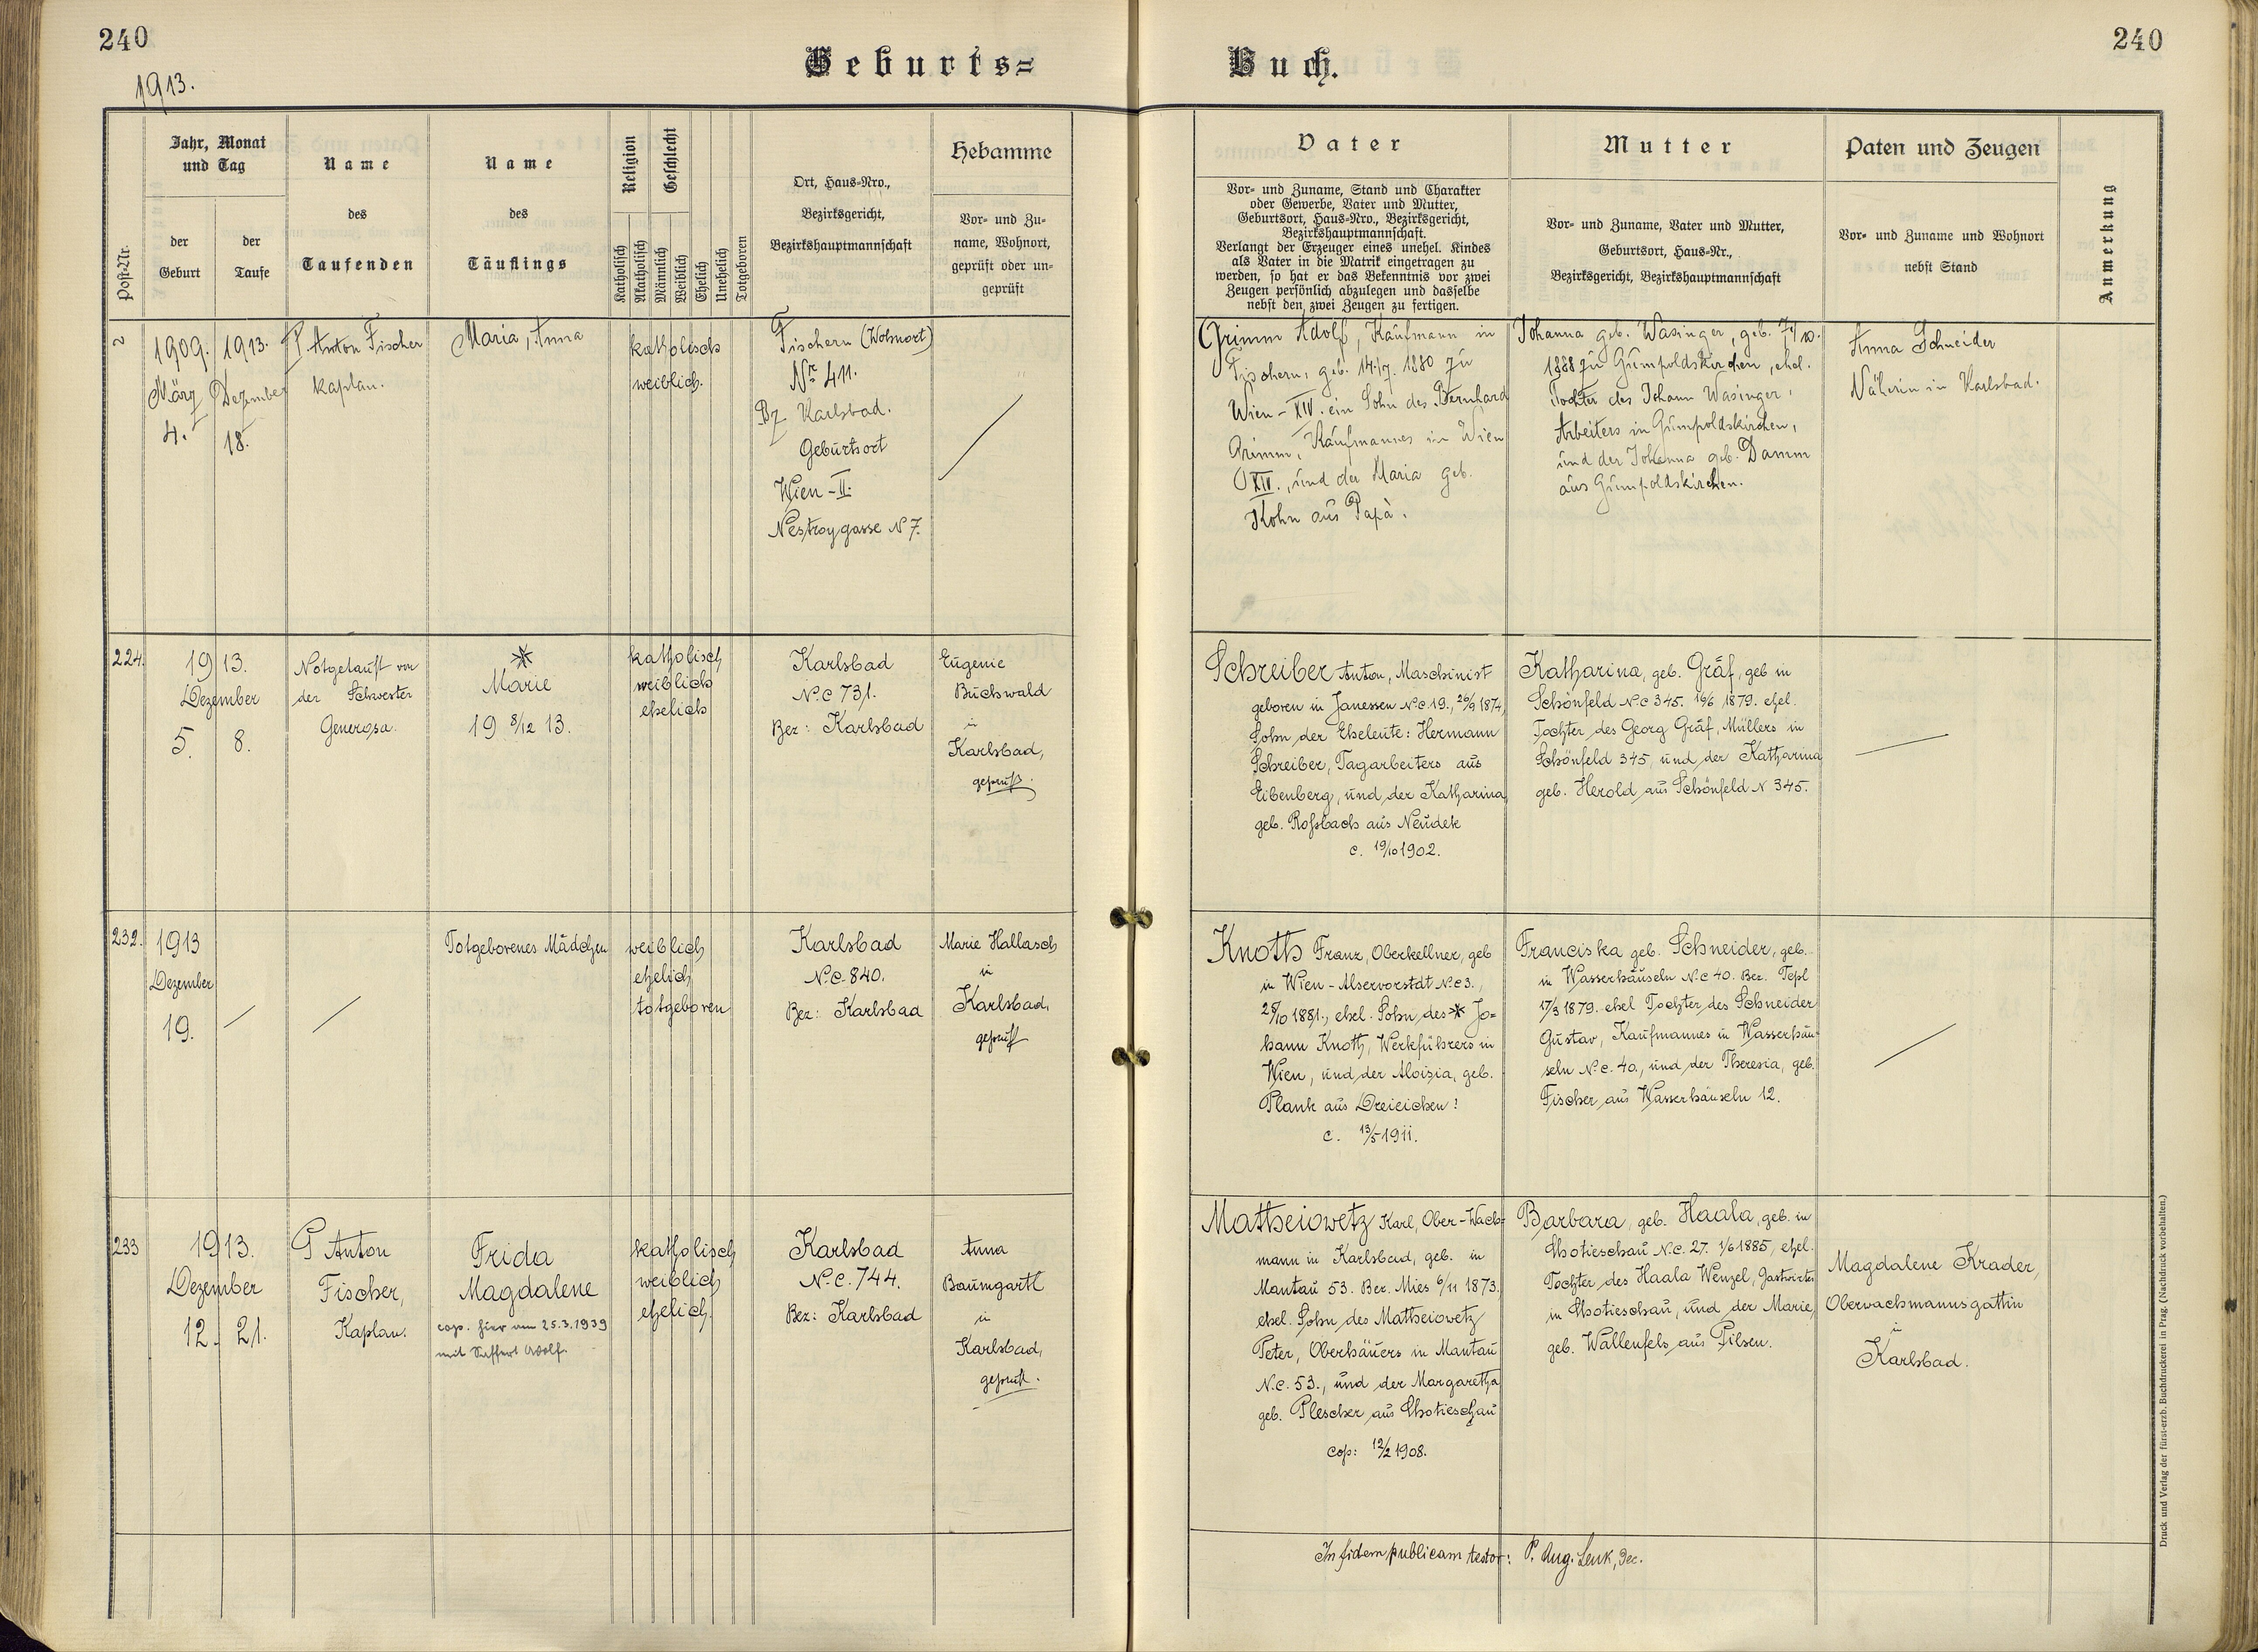 240
240
1913.
Geburts=
Buch.
Post-Nr.
Jahr, Monat
und Tag
der
Geburt
der
Taufe
Name
des
Taufenden
Name
des
Täuflings
Religion
Geschlecht
Katholisch
Akatholisch
Männlich
Weiblich
Ehelich
Unehelich
Totgeboren
Ort, Haus-Nro.,
Bezirksgericht,
Bezirkshauptmannschaft
Hebamme
Vor- und Zu-
name, Wohnort,
geprüft oder un-
geprüft
Vater
Vor- und Zuname, Stand und Charakter
oder Gewerbe, Vater und Mutter,
Geburtsort, Haus-Nro., Bezirksgericht,
Bezirkshauptmannschaft.
Verlangt der Erzeuger eines unehel. Kindes
als Vater in die Matrik eingetragen zu
werden, so hat er das Bekenntnis vor zwei
Zeugen persönlich abzulegen und dasselbe
nebst den zwei Zeugen zu fertigen.
Mutter
Vor- und Zuname, Vater und Mutter,
Geburtsort, Haus-Nr.,
Bezirksgericht, Bezirkshauptmannschaft
Paten und Zeugen
Vor- und Zuname und Wohnort
nebst Stand
Anmerkung
1909.
März
4.
1913.
Dezember
18.
P. Anton Fischer
Kaplan.
Maria, Anna
katholisch
weiblich.
Fischern (Wohnort)
Nr 411.
Bz Karlsbad.
Geburtsort
Wien - II.
Nestroygasse N 7.
Grimm Adolf, Kaufmann in
Fischern, geb. 14./7. 1880 zu
Wien - XIV. ein Sohn des Bernhard
Grimm, Kaufmannes in Wien
XIV., und der Maria geb.
Kohn aus Papà.
Johanna geb. Wasinger, geb.
1888 zu Gumpoldskirchen, ehel.
Tochter des Johann Wasinger,
Arbeiters in Gumpoldskirchen,
und der Johanna geb. Damm
aus Gumpoldskirchen.
Anna Schneider
Näherin in Karlsbad.
224.
1913.
Dezember
5. 8.
Notgetauft von
der Schwester
Generosa.
*
Marie
19 8/12 13.
katholisch
weiblich
ehelich
Karlsbad
N.C 731.
Bez: Karlsbad
Eugenie
Buchwald
in
Karlsbad,
geprüft.
Schreiber Anton, Maschinist
geboren in Janessen N.C 19., 26/9 1874,
Sohn der Eheleute: Hermann
Schreiber, Tagarbeiters aus
Eibenberg, und der Katharina,
geb. Roßbach aus Neudek
c. 19/10 1902.
Katharina, geb. Gräf, geb in
Schönfeld N.C 345. 16/6 1879. ehel.
Tochter des Georg Gräf, Müllers in
Schönfeld 345, und der Katharina
geb. Herold aus Schönfeld N 345.
232.
1913
Dezember
19.
Totgeborenes Mädchen
weiblich
ehelich
totgeboren
Karlsbad
N.C. 840.
Bez: Karlsbad
Marie Hallasch
in
Karlsbad,
geprüft
Knoth Franz, Oberkellner, geb
in Wien - Alservorstdt N.C 3.,
28/10 1881., ehel. Sohn des * Jo=
hann Knoth, Werkführers in
Wien, und der Aloisia, geb.
Plank aus Dreieichen:
c. 13/5 1911.
Franciska geb. Schneider, geb.
in Wasserhäuseln N.C 40. Bez. Tepl
17/3 1879. ehel Tochter des Schneider
Gustav, Kaufmannes in Wasserhäu=
seln N.C. 40., und der Theresia, geb.
Fischer aus Wasserhäuseln 12.
233
1913.
Dezember
12. 21.
P Anton
Fischer,
Kaplan.
Frida
Magdalene
cop. hier am 25.3.1939
mit Saffert Adolf.
katholisch
weiblich
ehelich.
Karlsbad
N.C. 744.
Bez: Karlsbad
Anna
Baumgartl
in
Karlsbad,
geprüft.
Matheiowetz Karl, Ober-Wach=
mann in Karlsbad, geb. in
Mantau 53. Bez. Mies 6/11 1873.
ehel. Sohn des Matheiowetz
Peter, Oberhäuers in Mantau
N.C. 53., und der Margaretha
geb. Plescher aus Chotieschau
cop: 12/2 1908.
Barbara, geb. Haala, geb. in
Chotieschau N.C. 27. 1/6 1885, ehel.
Tochter des Haala Wenzel, Gastwirtes
in Chotieschau, und der Marie,
geb. Wallenfels aus Pilsen.
Magdalene Krader,
Oberwachmannsgattin
in
Karlsbad.
In fidem publicam testor: P. Aug. Lenk, Dec.
Druck und Verlag der fürst-erzb. Buchdruckerei in Prag. (Nachdruck vorbehalten.)